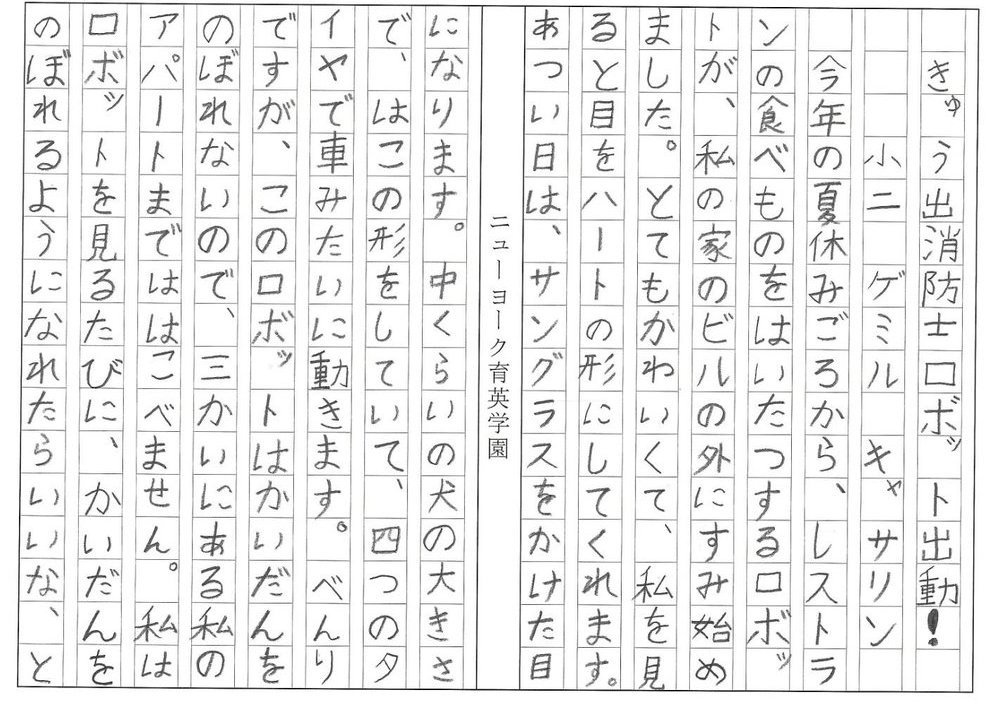 きゅう出消防士ロボット出動！
小二　ゲミル　キャサリン
今年の夏休みごろから、レストラ
ンの食べものをはいたつするロボッ
トが、私の家のビルの外にすみ始め
ました。とてもかわいくて、私を見
ると目をハートの形にしてくれます。
あつい日は、サングラスをかけた目
ニューヨーク育英学園
になります。中くらいの犬の大きさ
で、はこの形をしていて、四つのタ
イヤで車みたいに動きます。べんり
ですが、このロボットはかいだんを
のぼれないので、三かいにある私の
アパートまでははこべません。私は
ロボットを見るたびに、かいだんを
のぼれるようになれたらいいな、と